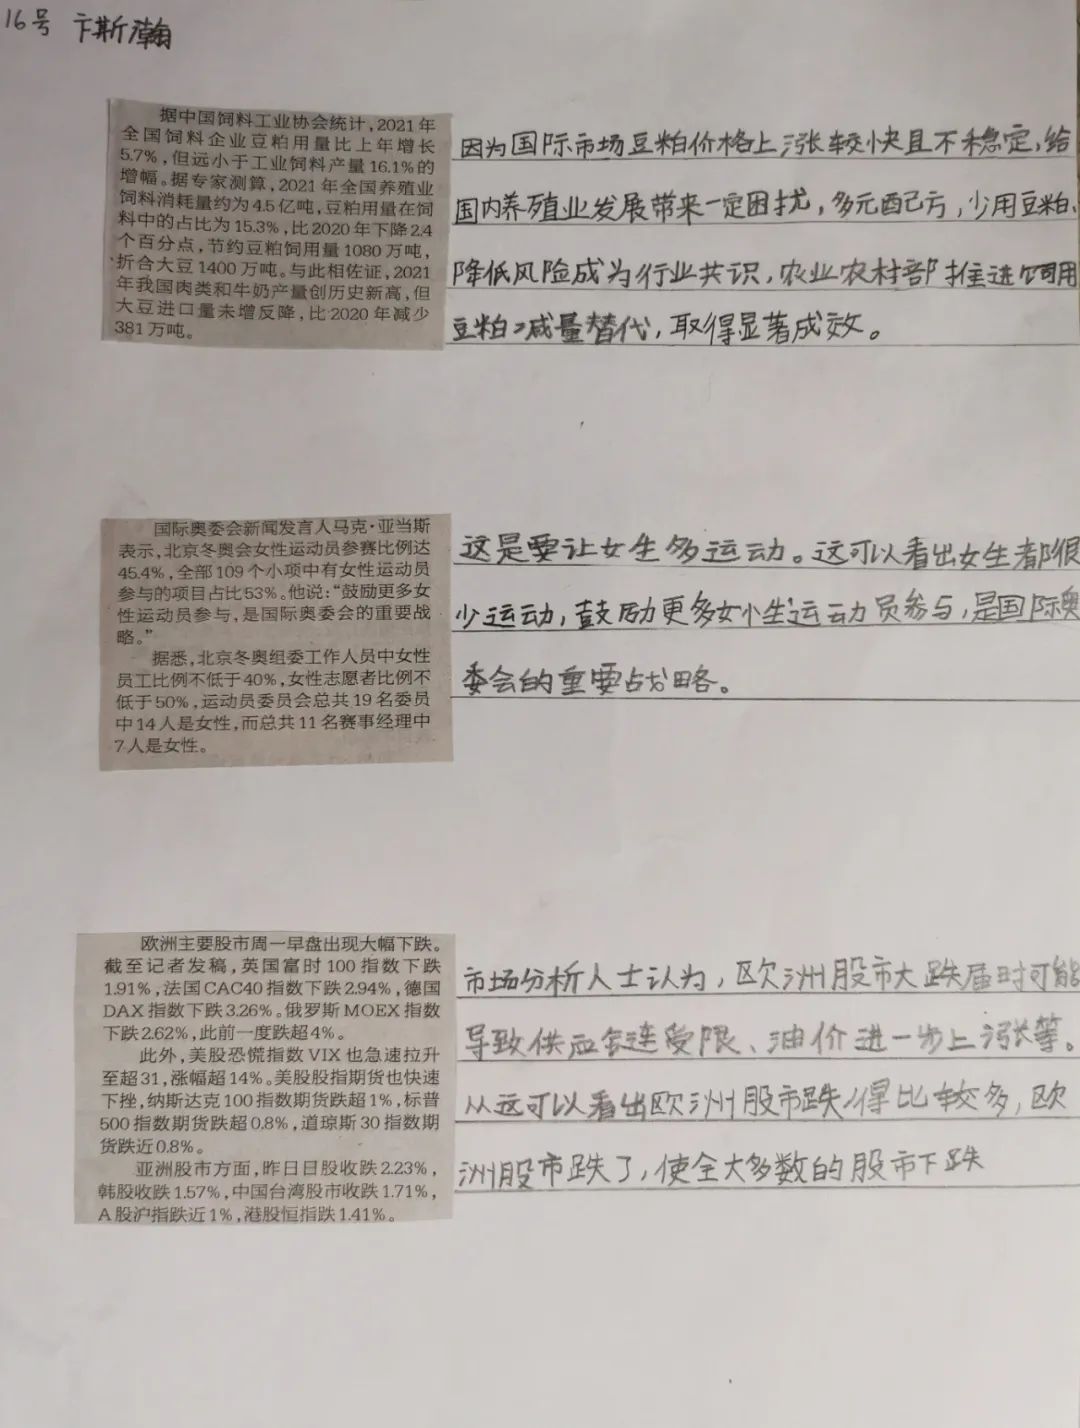 16号 卞斯瀚
据中国饲料工业协会统计,2021年
全国饲料企业豆粕用量比上年增长
5.7%,但远小于工业饲料产量16.1%的
增幅。据专家测算,2021年全国养殖业
饲料消耗量约为4.5亿吨,豆粕用量在饲
料中的占比为15.3%,比2020年下降2.4
个百分点,节约豆粕饲用量1080万吨,
折合大豆1400万吨。与此相佐证,2021
年我国肉类和牛奶产量创历史新高,但
大豆进口量未增反降,比2020年减少
381万吨。
因为国际市场豆粕价格上涨较快且不稳定,给
国内养殖业发展带来一定困扰,多元配方,少用豆粕、
降低风险成为行业共识,农业农村部推进饲用
豆粕减量替代,取得显著成效。
国际奥委会新闻发言人马克·亚当斯
表示,北京冬奥会女性运动员参赛比例达
45.4%,全部109个小项中有女性运动员
参与的项目占比53%。他说:“鼓励更多女
性运动员参与,是国际奥委会的重要战
略。”
据悉,北京冬奥组委工作人员中女性
员工比例不低于40%,女性志愿者比例不
低于50%,运动员委员会总共19名委员
中14人是女性,而总共11名赛事经理中
7人是女性。
这是要让女生多运动。这可以看出女生都很
少运动,鼓励更多女性运动员参与,是国际奥
委会的重要战略。
欧洲主要股市周一早盘出现大幅下跌。
截至记者发稿,英国富时100指数下跌
1.91%,法国CAC40指数下跌2.94%,德国
DAX指数下跌3.26%。俄罗斯MOEX指数
下跌2.62%,此前一度跌超4%。
此外,美股恐慌指数VIX也急速拉升
至超31,涨幅超14%。美股股指期货也快速
下挫,纳斯达克100指数期货跌超1%,标普
500指数期货跌超0.8%,道琼斯30指数期
货跌近0.8%。
亚洲股市方面,昨日日股收跌2.23%,
韩股收跌1.57%,中国台湾股市收跌1.71%,
A股沪指跌近1%,港股恒指跌1.41%。
市场分析人士认为,欧洲股市大跌届时可能
导致供应链受限、油价进一步上涨等。
从这可以看出欧洲股市跌得比较多,欧
洲股市跌了,使全大多数的股市下跌